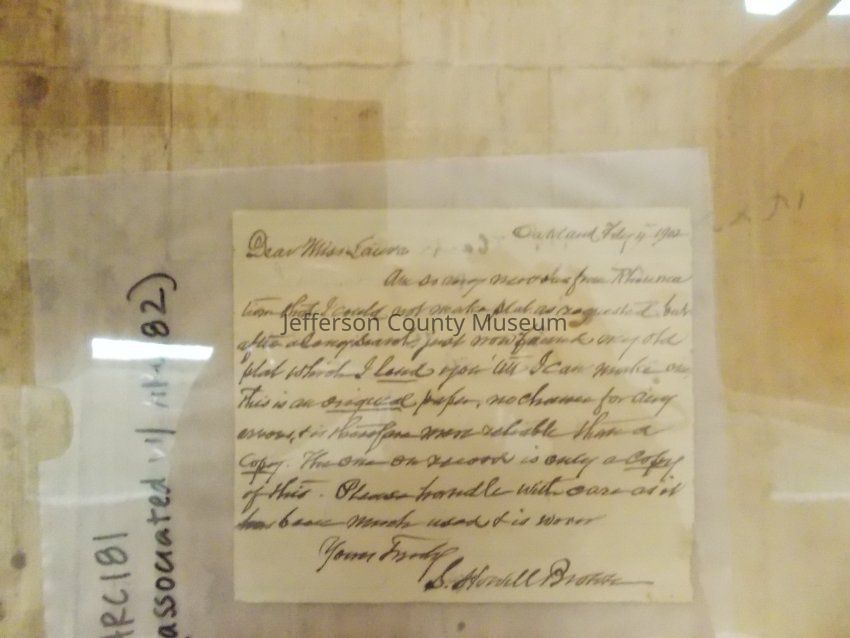 Oakland Feby 4 1902
Dear Miss Laura
Am so very nervous from Rheuma
tism that I could not make plat as requested but
after a long search, just now found my old
plat which I lend you till I can make one
This is an original paper, no chance for any
errors, & is therefore more reliable than a
Copy. The one on record is only a Copy
of this. Please handle with care as it
has been much used & is worn
Yours Truly
S. Howell Brown
Jefferson County Museum
ARC181
(associated w/ 82)